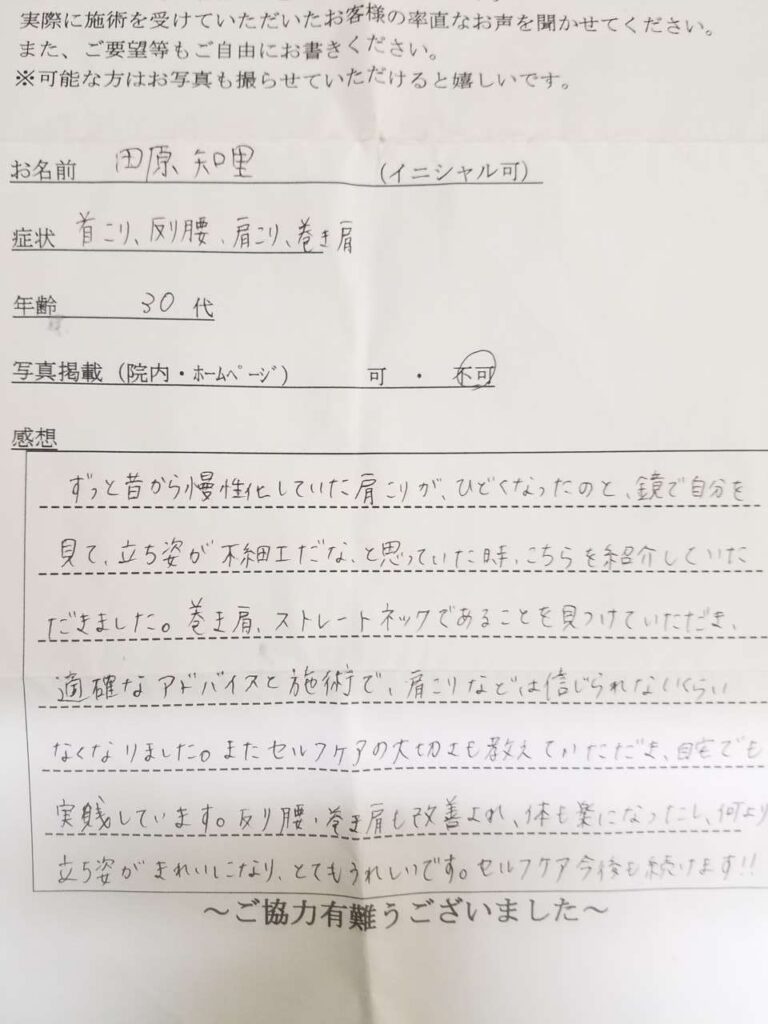 実際に施術を受けていただいたお客様の率直なお声を聞かせてください。
また、ご要望等もご自由にお書きください。
※可能な方はお写真も撮らせていただけると嬉しいです。
お名前 田原 知里 (イニシャル可)
症状 首こり、反り腰、肩こり、巻き肩
年齢 30 代
写真掲載(院内・ﾎｰﾑﾍﾟｰｼﾞ) 可 ・ 不可
感想
ずっと昔から慢性化していた肩こりが、ひどくなったのと、鏡で自分を
見て、立ち姿が不細工だな、と思っていた時、こちらを紹介していた
だきました。巻き肩、ストレートネックであることを見つけていただき、
適確なアドバイスと施術で、肩こりなどは信じられないくらい
なくなりました。またセルフケアの大切さも教えていただき、自宅でも
実践しています。反り腰・巻き肩も改善され、体も楽になったし、何より
立ち姿がきれいになり、とてもうれしいです。セルフケア今後も続けます!!
～ご協力有難うございました～